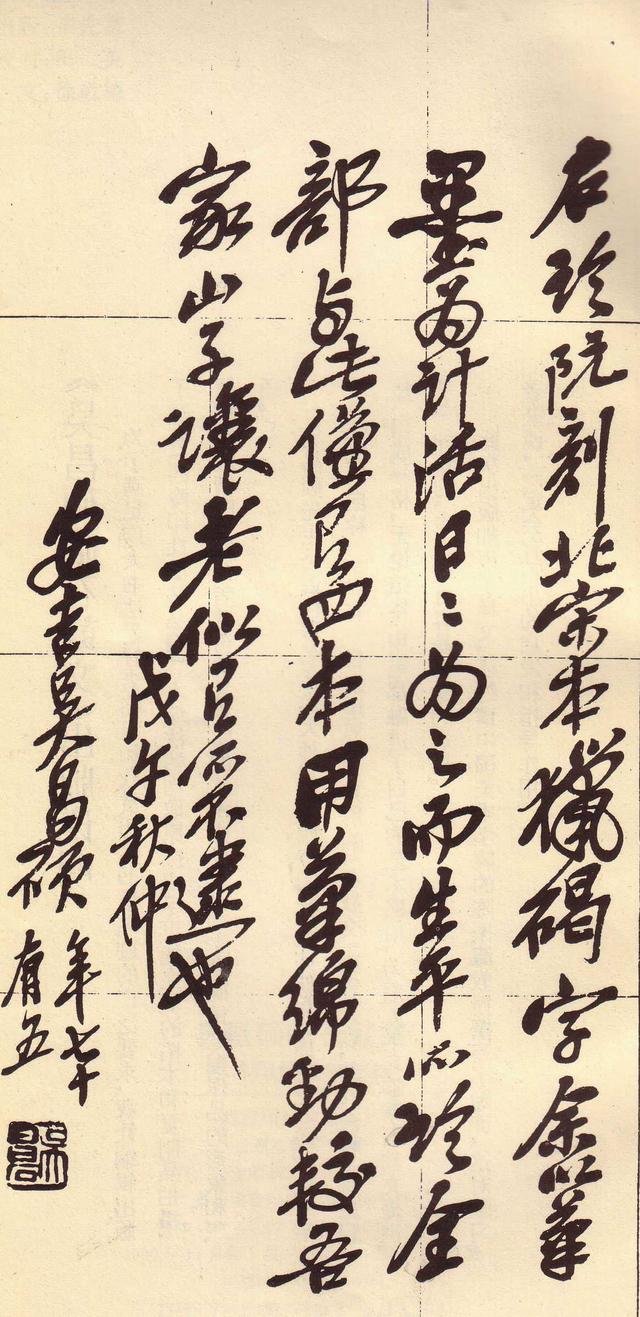 右臨阮刻北宋本獵碣字余以筆
墨為計活日〻為之而生平所臨全
部与此僅四本用筆綿勁較吾
家山子讓老似所不逮也
戊午秋仲
安吉吳昌碩
年七十
有五